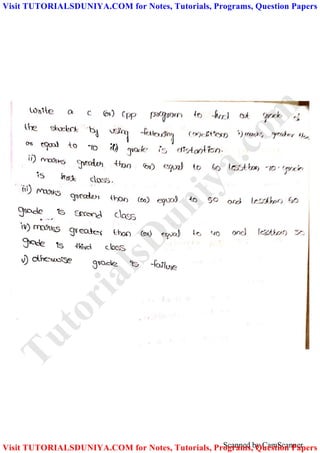 Visit TUTORIALSDUNIYA.COM for Notes, Tutorials, Programs, Question Papers
write a c (or) cpp program to find out grade of
the student by using following condition i) marks greater than
or equal to 70 grade is distantion.
ii) marks greater than (or) equal to 60 lessthan 70 grade
is first class.
iii) marks greater than (or) equal to 50 and lessthan 60
grade is second class
iv) marks greater than (or) equal to 40 and lessthan 50
grade is third class
v) otherwise grade is failure
TutorialsDuniya.com
Scanned by CamScanner
Visit TUTORIALSDUNIYA.COM for Notes, Tutorials, Programs, Question Papers